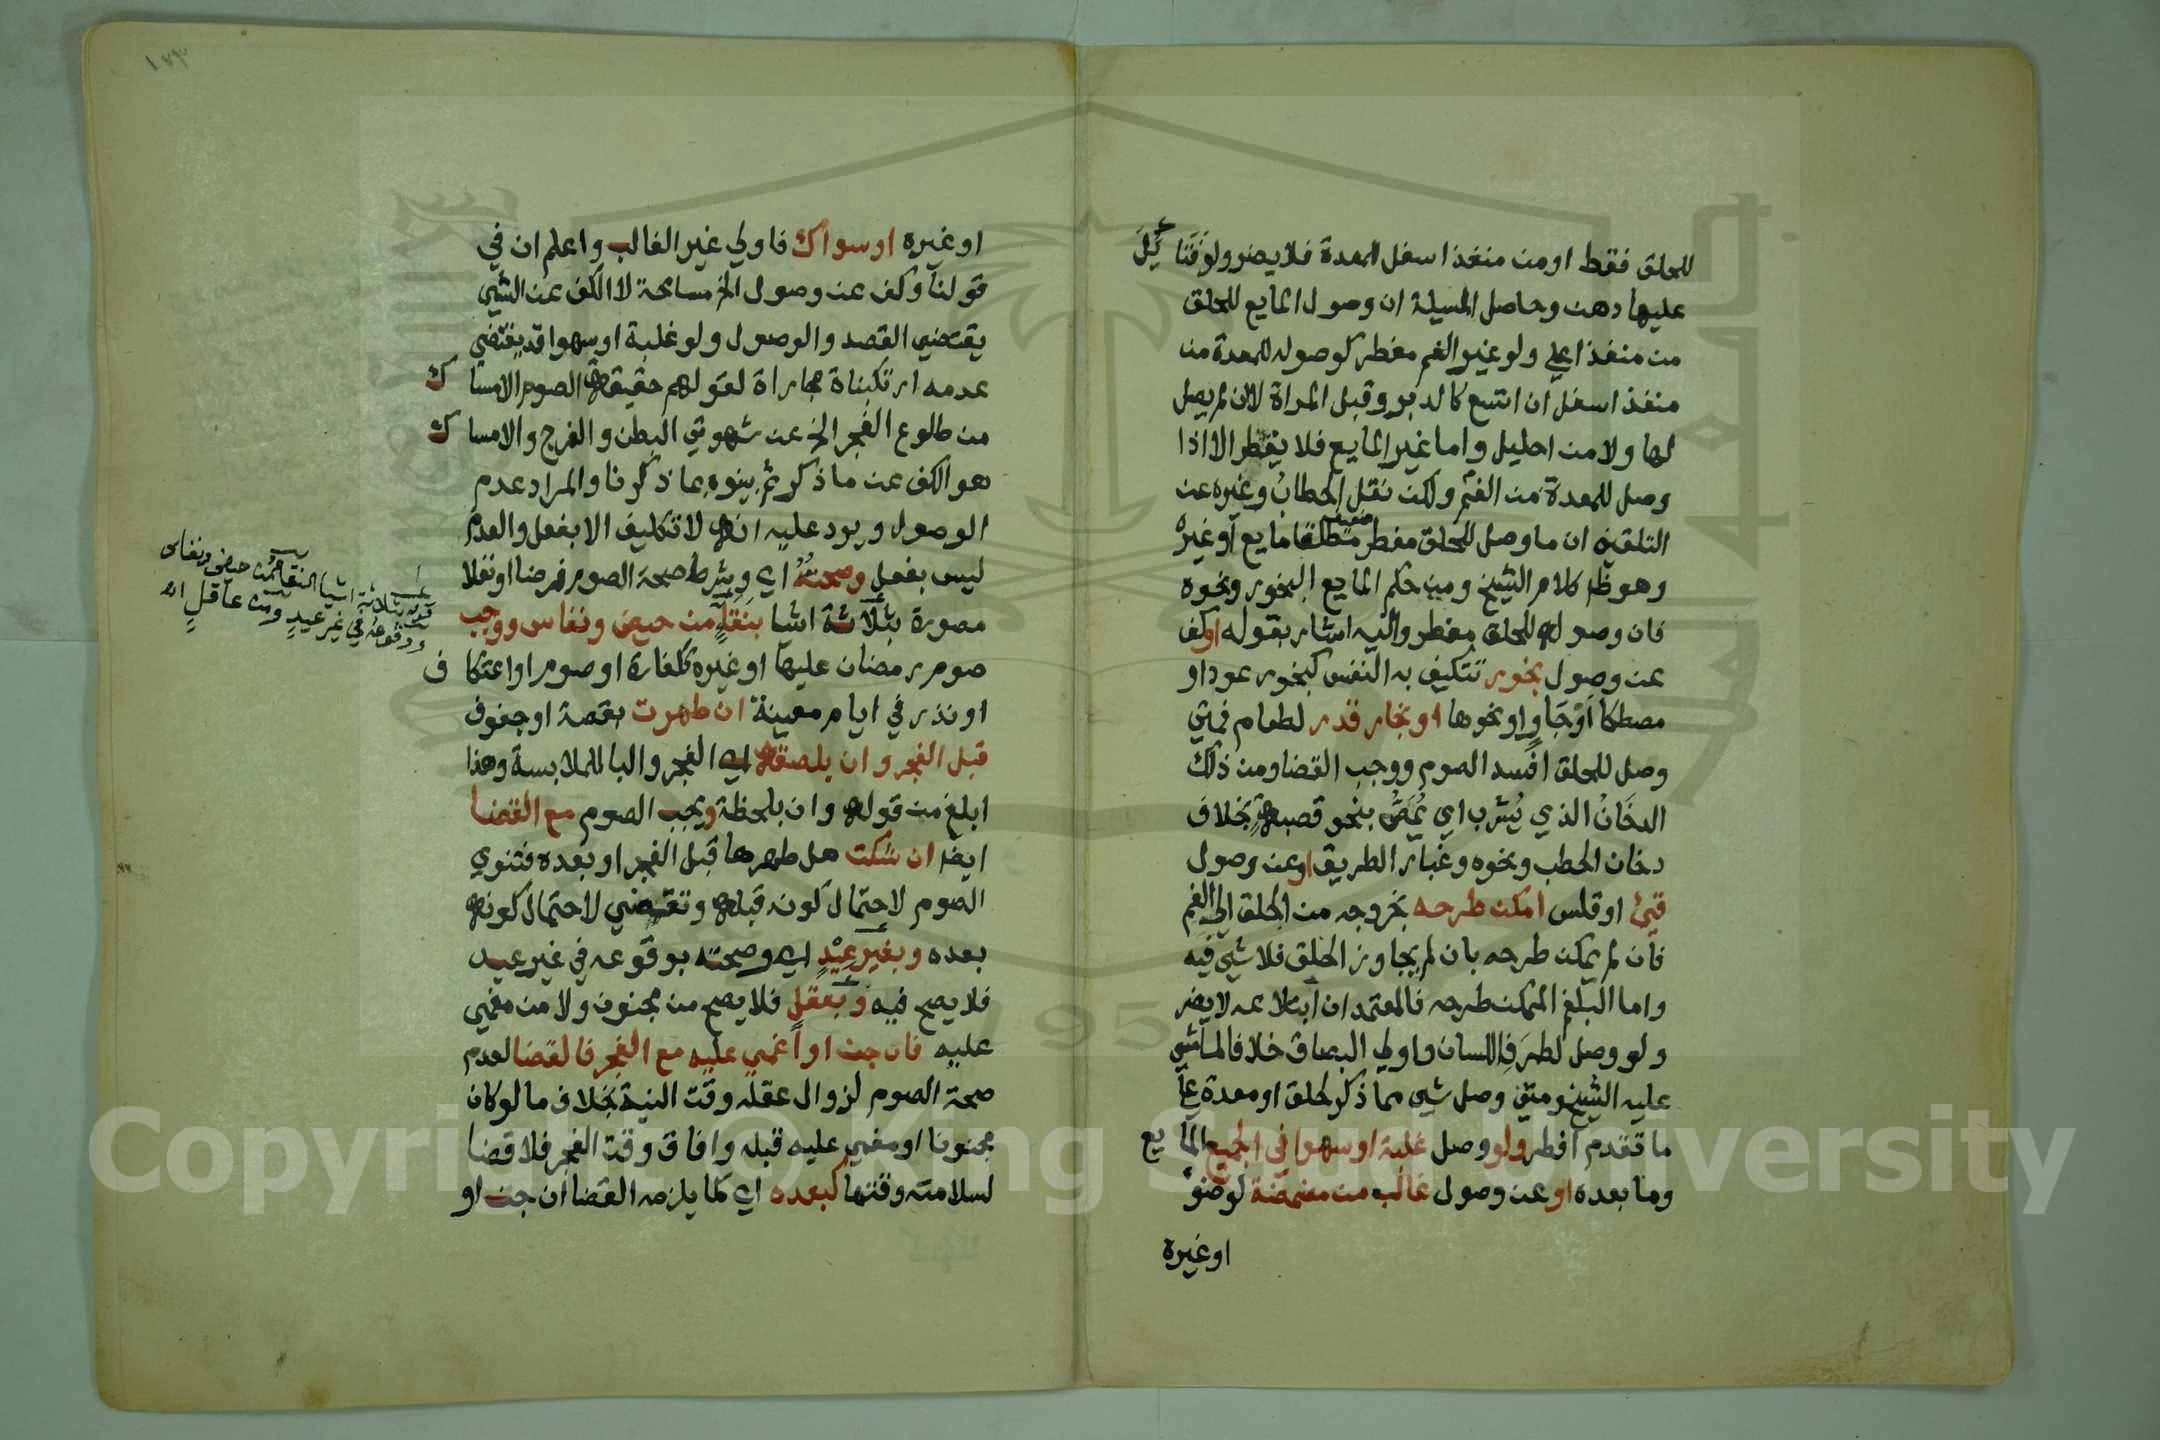 للحلق فقط او من منفذ اسفل المعدة فلا يضر ولو فتايل
عليها دهن وحاصل المسيلة ان وصول المايع للحلق
من منفذ اعلي ولو غير الفم مفطر كوصوله للمعدة من
منفذ اسفل ان اتسع كالدبر وقبل المراة لا ان لم يصل
لها ولا من احليل واما غير المايع فلا يفطر الا اذا
وصل للمعدة من الفم ولكن نقل الحطاب وغيره عن
التلقين ان ما وصل للحلق مفطر مطلقا مايع او غيره
وهو ظ كلام الشيخ ومن حكم المايع البخور ونحوه
فان وصوله للحلق مفطر واليه اشار بقوله او كف
عن وصول بخور تتكيف به النفس كبخور عود او
مصطكا او جاو او نحوها او بخار قدر لطعام فمتي
وصل للحلق افسد الصوم ووجب القضا ومن ذلك
الدخان الذي يشرب اي يمص بنحو قصبة بخلاف
دخان الحطب ونحوه وغبار الطريق او عن وصول
قيئ او قلس امكن طرحه بخروجه من الحلق الي الفم
فان لم يمكن طرحه بان لم يجاوز الحلق فلا شي فيه
واما البلغم الممكن طرحه فالمعتمد ان ابتلاعه لا يضر
ولو وصل لطرف اللسان واولي البصاق خلافا لما مشي
عليه الشيخ ومتي وصل شي مما ذكر لحلق او معدة علي
ما تقدم افطر ولو وصل غلبة او سهوا في الجميع المايع
وما بعده او عن وصول غالب من مضمضة لوضوء
او غيره
١٧٣
او غيره او سواك فاولي غير الغالب واعلم ان في
قولنا وكف عن وصول الخ مسامحة لا الكف عن الشي
يقتضي القصد والوصول ولو غلبة او سهوا قد يقتضي
عدمه ارتكبناه مجاراة لقولهم حقيقة الصوم الامساك
من طلوع الفجر الخ عن شهوتي البطن والفرج والامساك
هو الكف عن ما ذكر ثم بينوه بما ذكرنا والمراد عدم
الوصول ويرد عليه انه لا تكليف الا بفعل والعدم
ليس بفعل وصحته اي وشرط صحة الصوم فرضا او نفلا
مصورة بثلاثة اشيا بنقا من حيض ونفاس ووجب
صوم رمضان عليها او غيره ككفارة او صوم او اعتكاف
او نذر في ايام معينة ان طهرت بقصة او جفوف
قبل الفجر وان بلصقه اي الفجر والبا للملابسة وهذا
ابلغ من قوله وان بلحظة ويجب الصوم مع القضا
ايضا ان شكت هل طهرها قبل الفجر او بعده فتنوي
الصوم لاحتمال كونه قبله وتقضي لاحتمال كونه
بعده وبغير عيد اي وصحته بوقوعه في غير عيد
فلا يصح فيه وبعقل فلا يصح من مجنون ولا من مغمي
عليه فان جن او اغمي عليه مع الفجر فالقضا لعدم
صحة الصوم لزوال عقله وقت النية بخلاف ما لو كان
مجنونا او مغمي عليه قبله وافاق وقت الفجر فلا قضا
لسلامته وقتها كبعده اي كما يلزمه القضا ان جن او
قوله بثلاثة اشيا النقا من حيض ونفاس
ووقوعه في غير عيد ومن عاقل اه